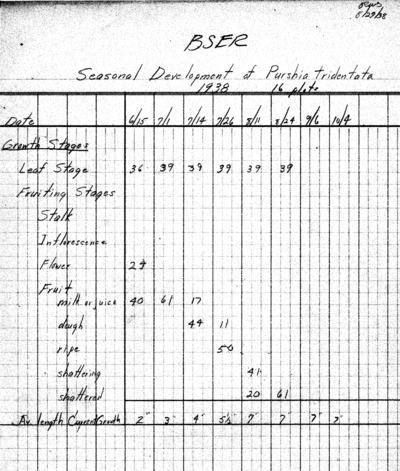 8/29/38
BSER
Seasonal Development of Purshia tridentata
1938 16 plots
Date 6/15 7/1 7/14 7/26 8/11 8/24 9/6 10/4
Growth Stages
Leaf Stage 36 39 39 39 39 39
Fruiting Stages
Stalk
Inflorescence
Flower 24
Fruit
milk or juice 40 61 17
dough 44 11
ripe 50
shattering 41
shattered 20 61
Av. length Current Growth 2" 3" 4" 5½" 7" 7" 7" 7"